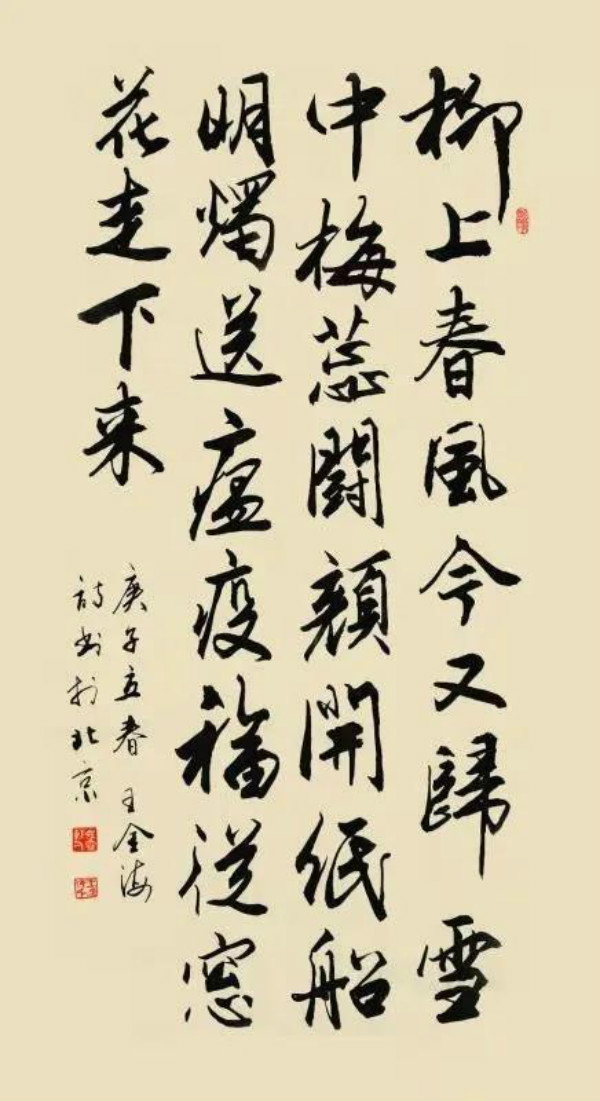 柳上春風今又歸雪
中梅蕊鬪顏開紙船
明燭送瘟疫福從窓
花走下来
庚子立春王金海
詩书於北京